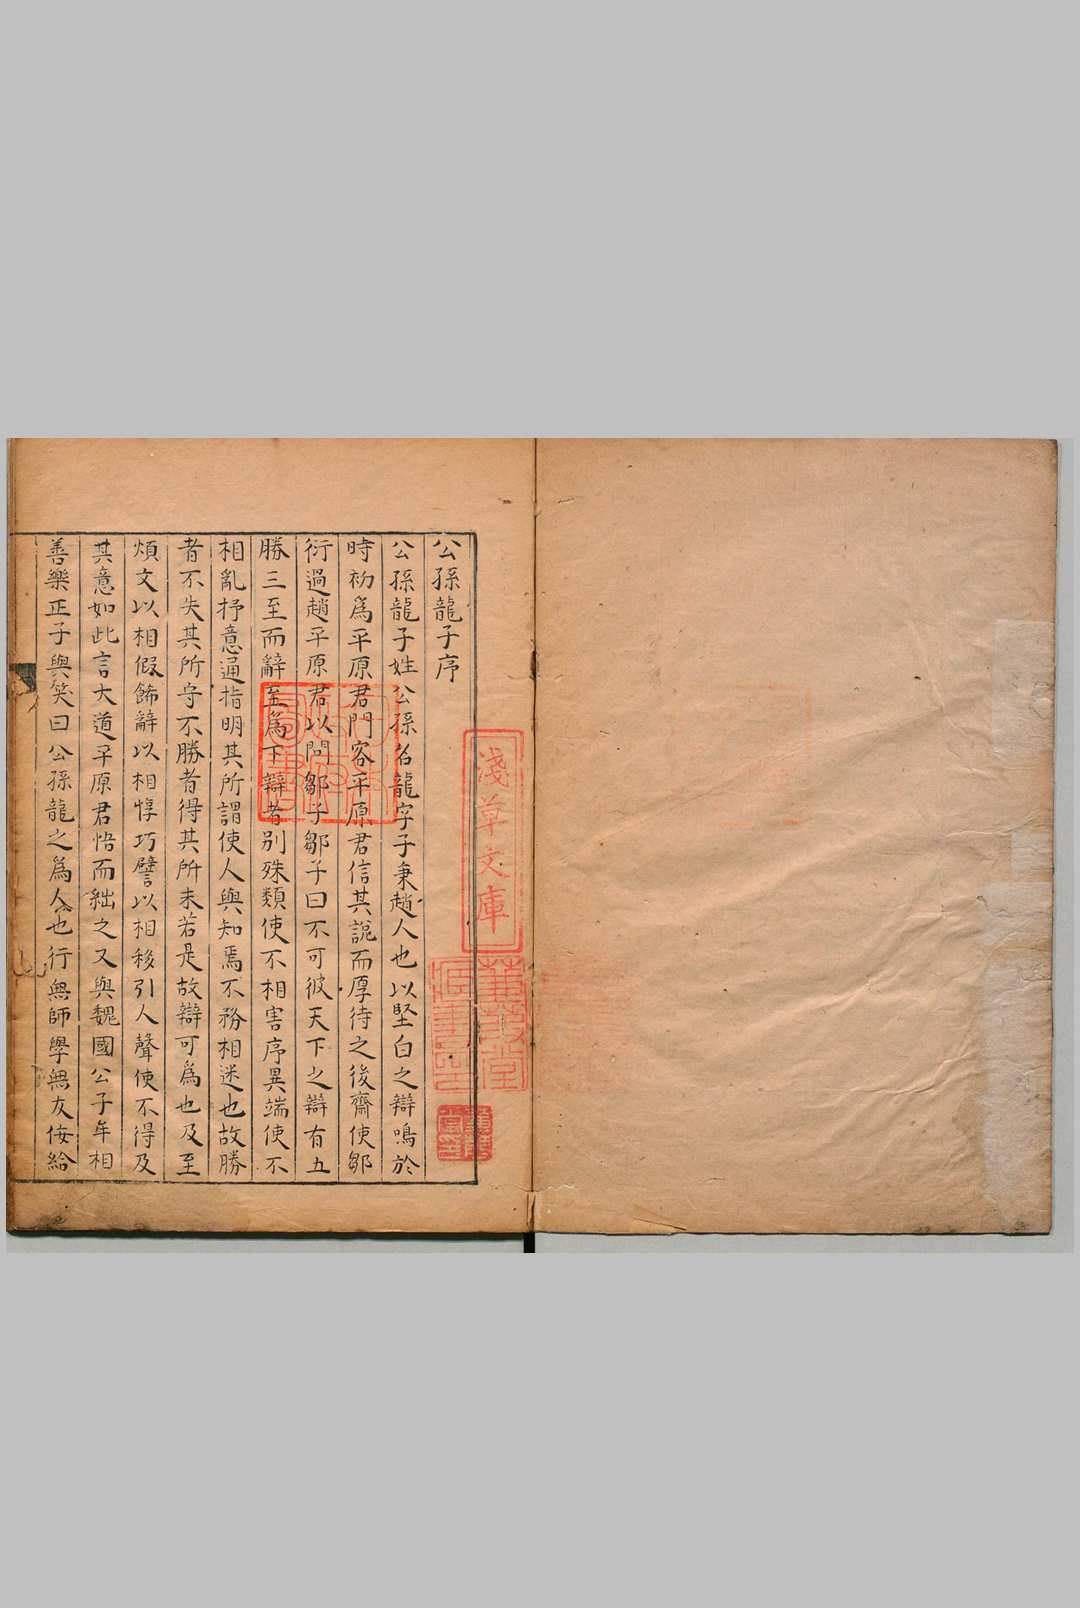 公孫龍子序
公孫龍子姓公孫名龍字子秉趙人也以堅白之辯鳴於
時初爲平原君門客平原君信其說而厚待之後齊使鄒
衍過趙平原君以問鄒子鄒子曰不可彼天下之辯有五
勝三至而辭至爲下辯者別殊類使不相害序異端使不
相亂抒意通指明其所謂使人與知焉不務相迷也故勝
者不失其所守不勝者得其所求若是故辯可爲也及至
煩文以相假飾辭以相惇巧譬以相移引人聲使不得及
其意如此害大道平原君悟而絀之又與魏國公子牟相
善樂正子輿笑曰公孫龍之爲人也行無師學無友佞給
淺草文庫
蒹葭堂
藏書印